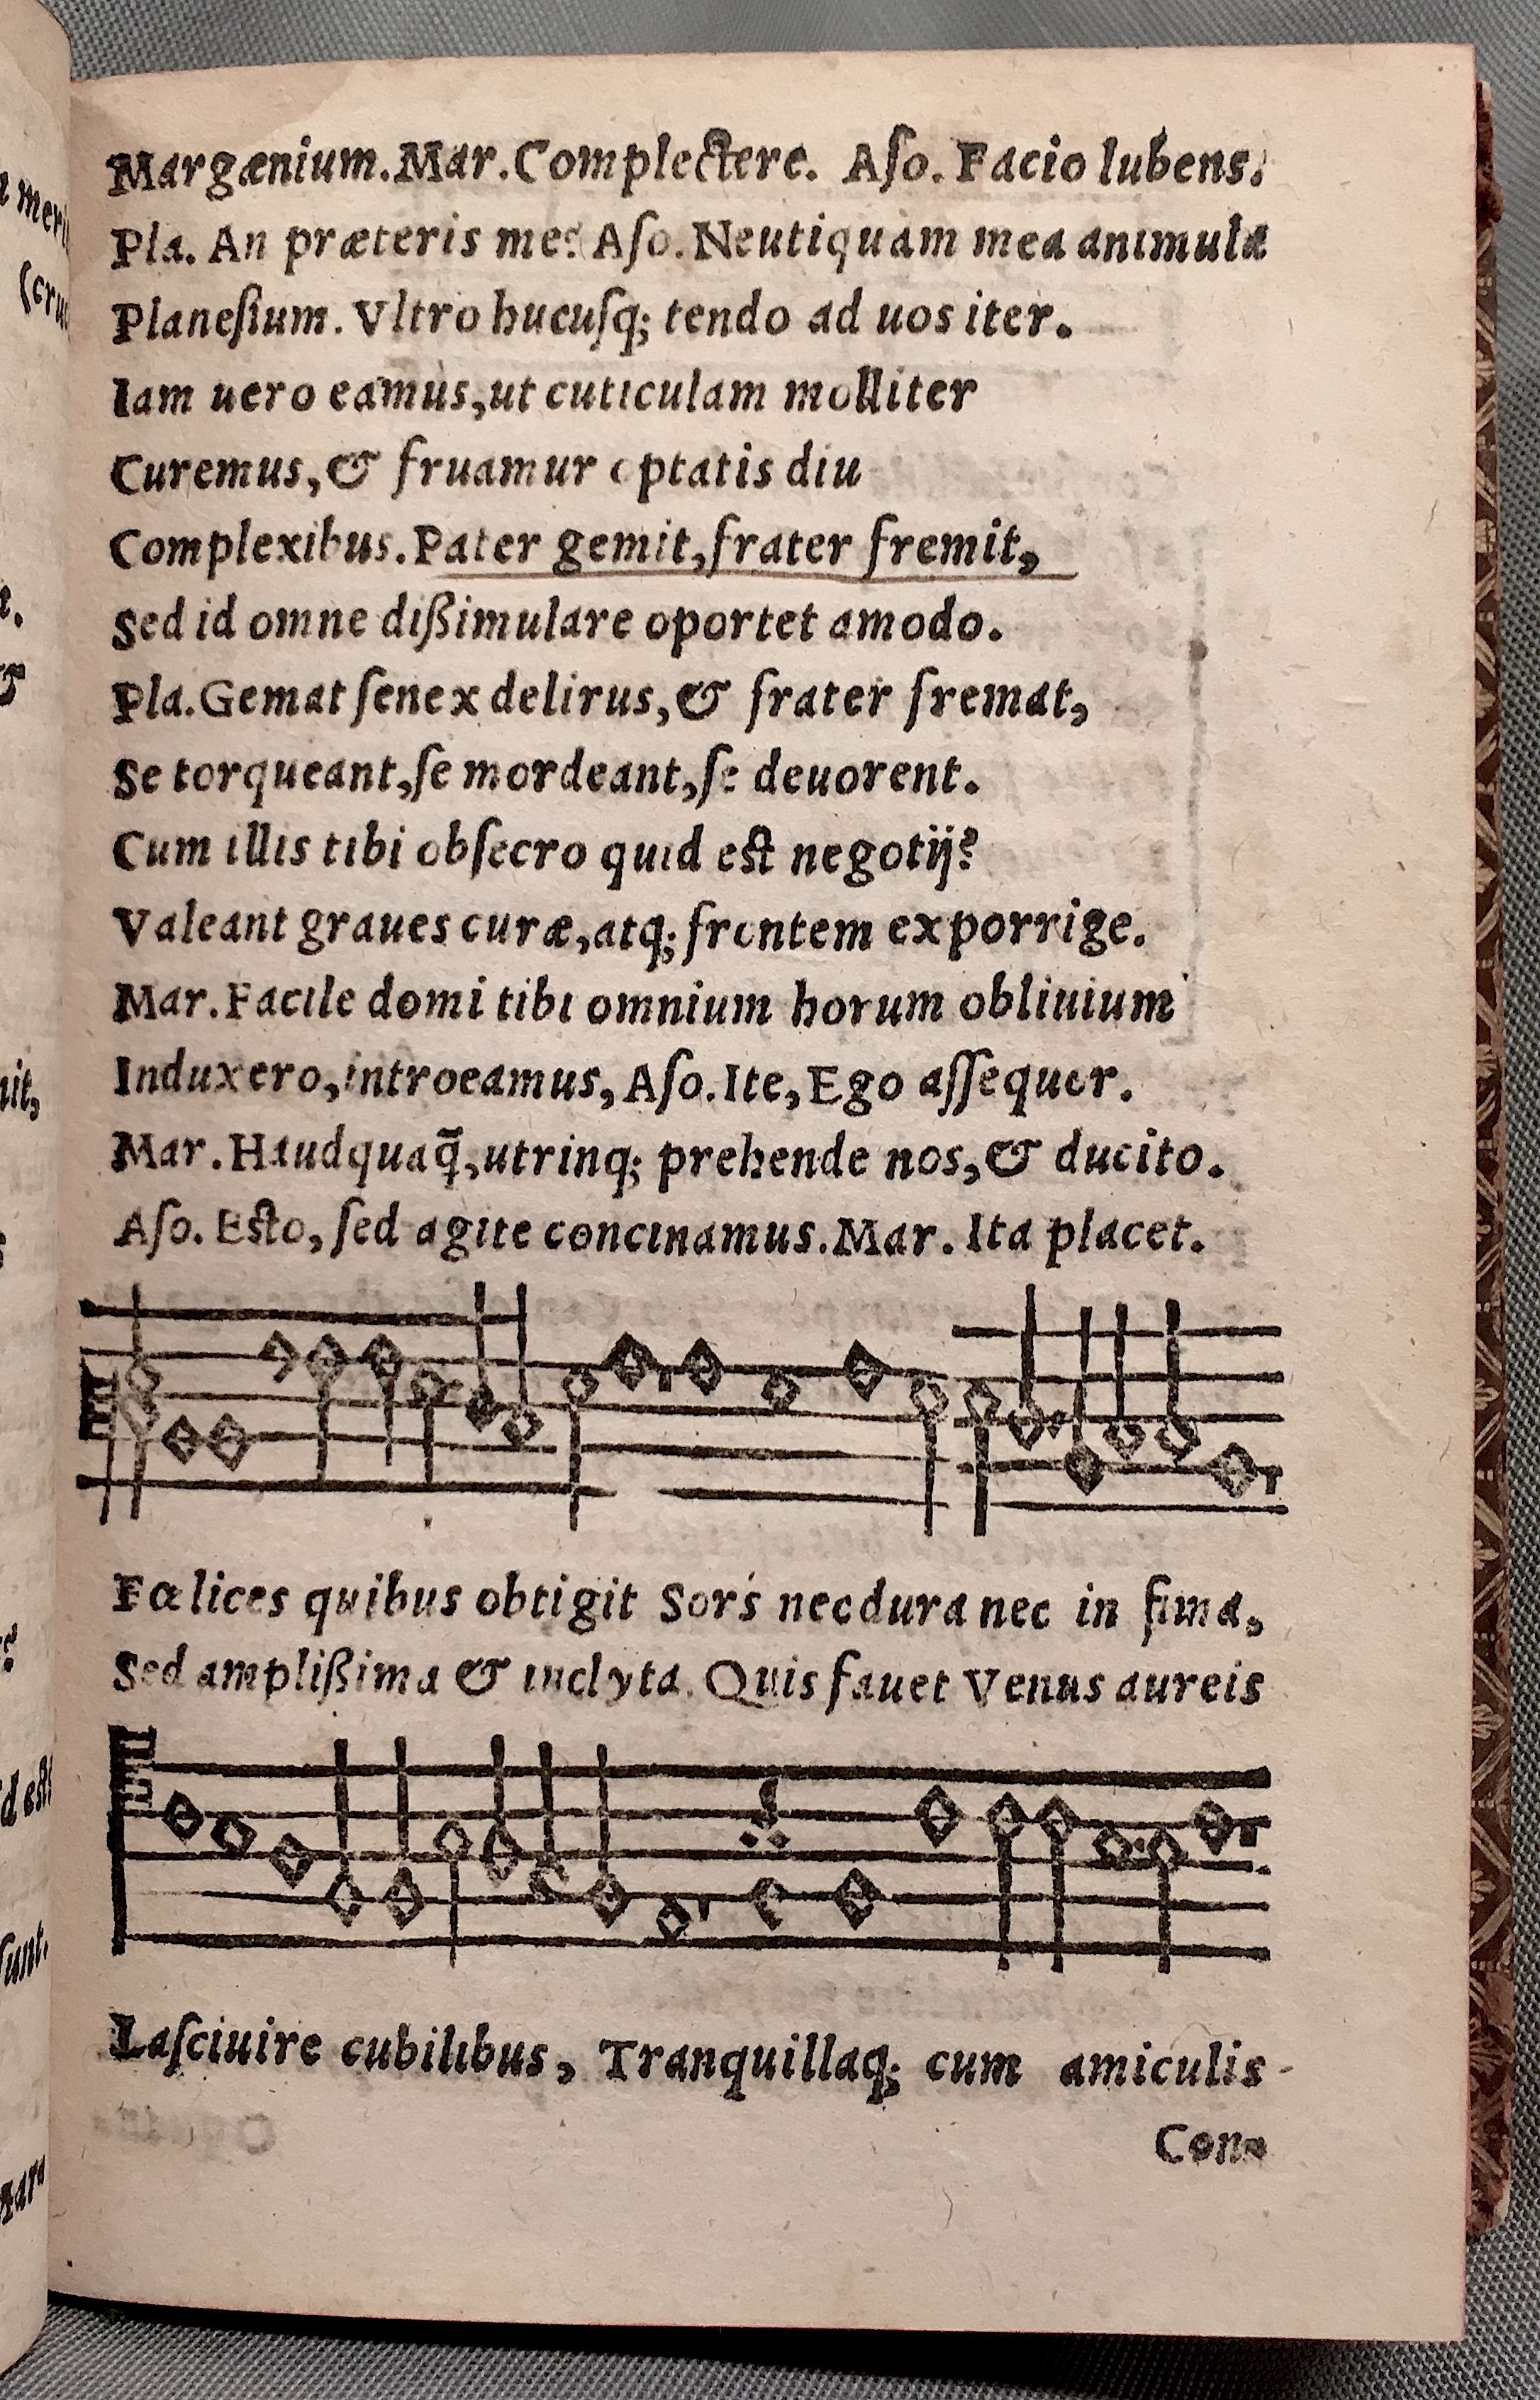 Margænium. Mar. Complectere. Aſo. Facio lubens.
Pla. An præteris me? Aſo. Neutiquam mea animula
Planeſium. Vltro hucuſq; tendo ad uos iter.
Iam uero eamus, ut cuticulam molliter
Curemus, & fruamur optatis diu
Complexibus. Pater gemit, frater fremit,
Sed id omne dißimulare oportet amodo.
Pla. Gemat ſenex delirus, & frater fremat,
Se torqueant, ſe mordeant, ſe deuorent.
Cum illis tibi obſecro quid est negotij?
Valeant graues curæ, atq; frontem exporrige.
Mar. Facile domi tibi omnium horum obliuium
Induxero, introeamus, Aſo. Ite, Ego aſſequor.
Mar. Haudquaq̃, utrinq; prehende nos, & ducito.
Aſo. Esto, ſed agite concinamus. Mar. Ita placet.
Fœlices quibus obtigit Sors nec dura nec in fima,
Sed amplißima & inclyta. Quis fauet Venus aureis
Laſciuire cubilibus, Tranquillaq; cum amiculis
Con-